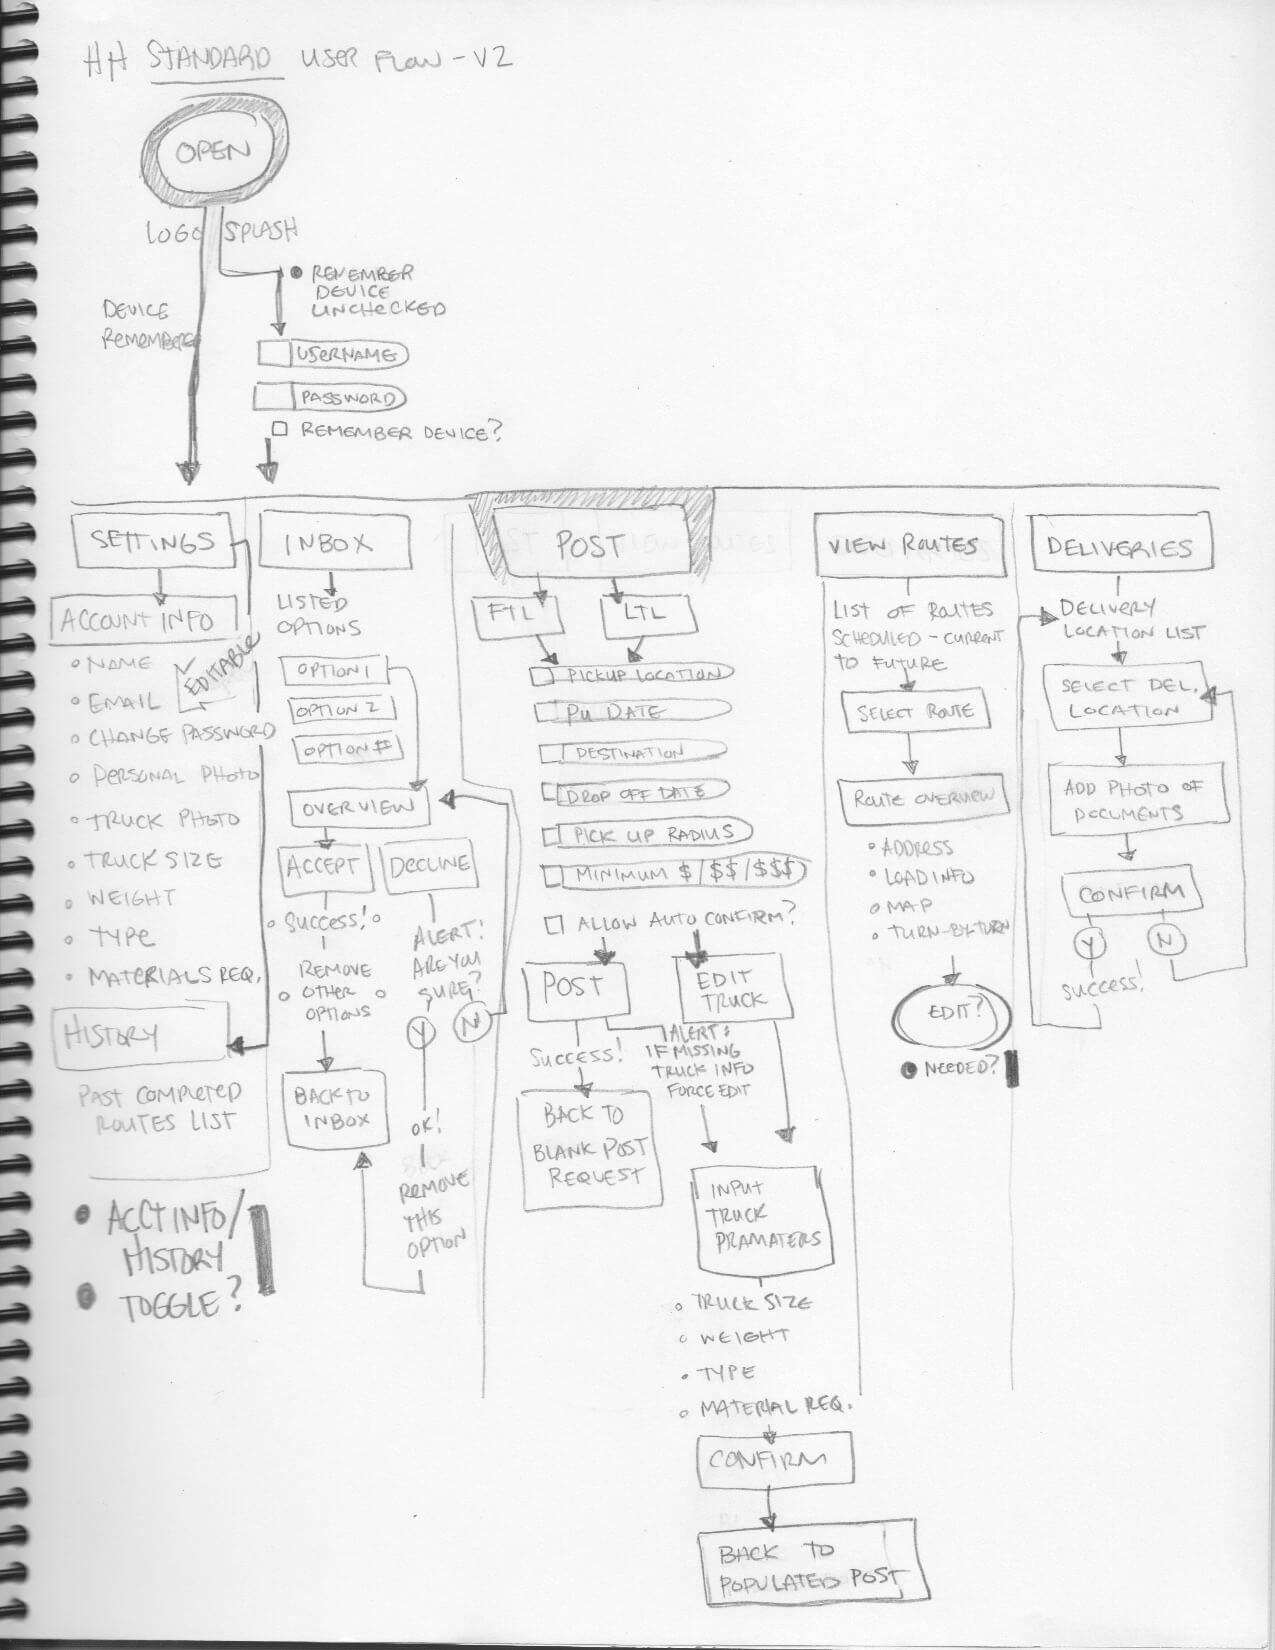 HH STANDARD USER FLOW - V2
OPEN
LOGO SPLASH
DEVICE
REMEMBERED
REMEMBER
DEVICE
UNCHECKED
USERNAME
PASSWORD
REMEMBER DEVICE?
SETTINGS
ACCOUNT INFO
EDITABLE
NAME
EMAIL
CHANGE PASSWORD
PERSONAL PHOTO
TRUCK PHOTO
TRUCK SIZE
WEIGHT
TYPE
MATERIALS REQ.
HISTORY
PAST COMPLETED
ROUTES LIST
ACCT INFO/
HISTORY
TOGGLE?
INBOX
LISTED
OPTIONS
OPTION 1
OPTION 2
OPTION #
OVERVIEW
ACCEPT
SUCCESS!
REMOVE
OTHER
OPTIONS
BACK TO
INBOX
DECLINE
ALERT!
ARE YOU
SURE?
Y
N
OK!
REMOVE
THIS
OPTION
POST
FTL
LTL
PICKUP LOCATION
PU DATE
DESTINATION
DROP OFF DATE
PICK UP RADIUS
MINIMUM $/$$/$$$
ALLOW AUTO CONFIRM?
POST
SUCCESS!
BACK TO
BLANK POST
REQUEST
EDIT
TRUCK
ALERT:
IF MISSING
TRUCK INFO
FORCE EDIT
INPUT
TRUCK
PRAMATERS
TRUCK SIZE
WEIGHT
TYPE
MATERIAL REQ.
CONFIRM
BACK TO
POPULATED POST
VIEW ROUTES
LIST OF ROUTES
SCHEDULED - CURRENT
TO FUTURE
SELECT ROUTE
ROUTE OVERVIEW
ADDRESS
LOAD INFO
MAP
TURN-BY-TURN
EDIT?
NEEDED?
DELIVERIES
DELIVERY
LOCATION LIST
SELECT DEL.
LOCATION
ADD PHOTO OF
DOCUMENTS
CONFIRM
Y
N
SUCCESS!